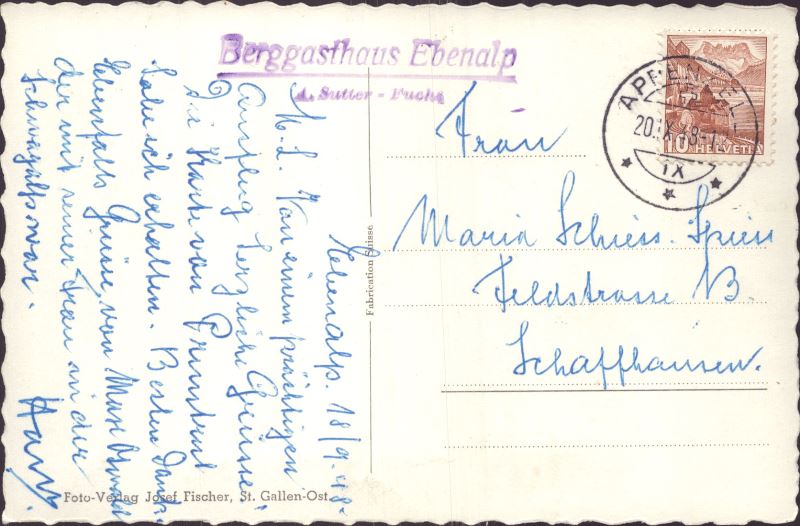 Berggasthaus Ebenalp
A. Sutter - Fuchs
Ebenalp. 18/9.48.
M. L. Von einem prächtigen
Ausflug herzliche Grüsse.
Die Karte von Pruntrut
habe ich erhalten. Besten Dank.
Ebenfalls Grüsse von Max
der mit seiner Frau an der
Schwägalp war.
Hans.
Fabrication Suisse
Foto-Verlag Josef Fischer, St. Gallen-Ost.
APPENZELL
20.IX.48-1
IX
10 HELVETIA
Frau
Maria Schiess-Spiess
Feldstrasse 13.
Schaffhausen.